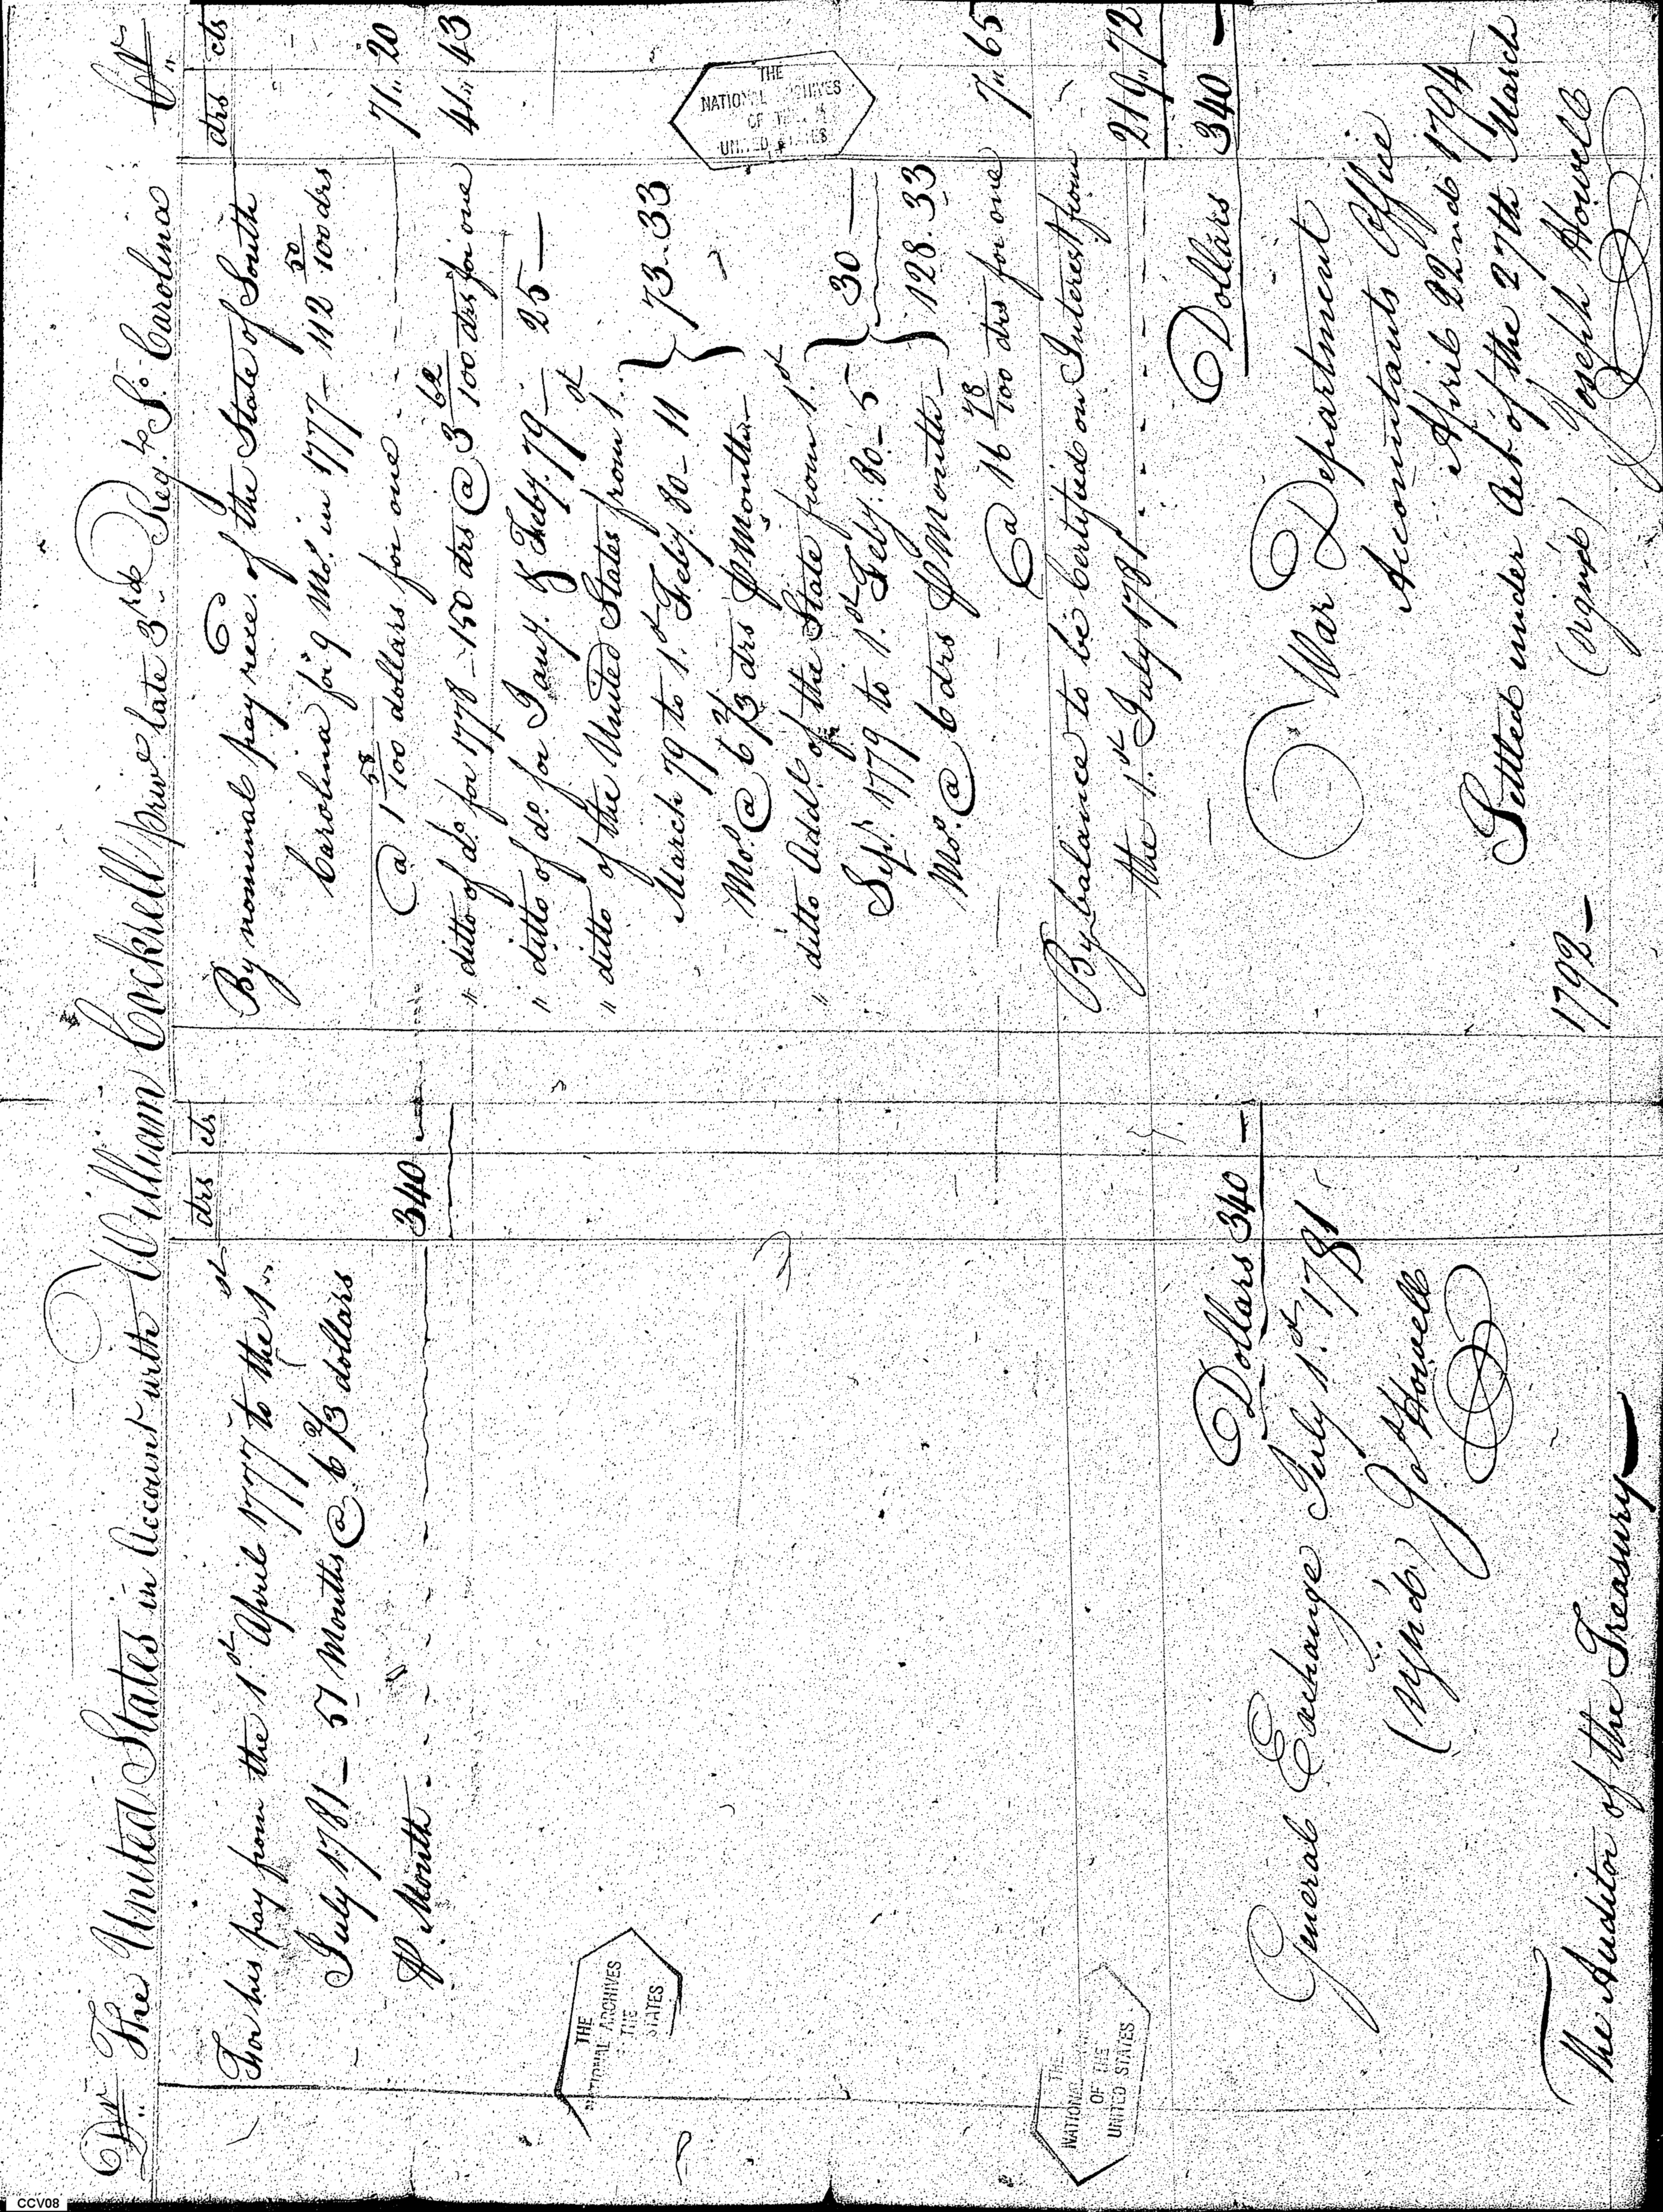 Dr. The United States in Account with William Cockrell priv.e late 3rd Reg.t So. Carolina Cr.
drs cts
For his pay from the 1st April 1777 to the 1st
July 1781 — 51 Months @ 6 2/3 dollars
⅌ Month - - - 340 —
Dollars 340 —
General Exchange July 1st 1781
(sign'd) Jos Howell
The Auditor of the Treasury
drs cts
By nominal pay rece.d of the State of South
Carolina for 9 Mos. in 1777 — 112 50/100 drs
@ 1 58/100 dollars for one - - 71 " 20
" ditto of do. for 1778 — 150 drs @ 3 62/100 drs for one 41 " 43
" ditto of do. for Jany. & Feby. 79 — 25 —
" ditto of the United States from 1st
March 79 to 1st Feby. 80 — 11
Mos. @ 6 2/3 drs ⅌ Month — } 73 .. 33
" ditto Addl. of the State from 1st
Sepr. 1779 to 1st Feby. 80 — 5
Mos. @ 6 drs ⅌ Month — } 30 —
128 . 33
@ 16 78/100 drs for one 7 " 65
By balance to be Certified on Interest from
the 1st July 1781 - - - - 219 " 72
Dollars 340 —
War Department
Accountants Office
April 22nd 1794
Settled under Act of the 27th March
1792 —
(signed) Joseph Howell
THE
NATIONAL ARCHIVES
OF THE
UNITED STATES
THE
NATIONAL ARCHIVES
THE
STATES
THE
NATIONAL
OF THE
UNITED STATES
CCV08